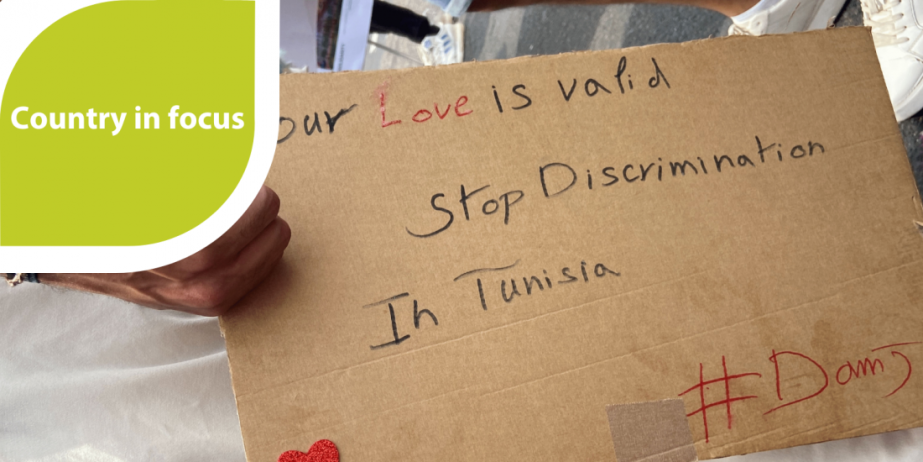 Country in focus
our Love is valid
Stop Discrimination
In Tunisia
#Damj